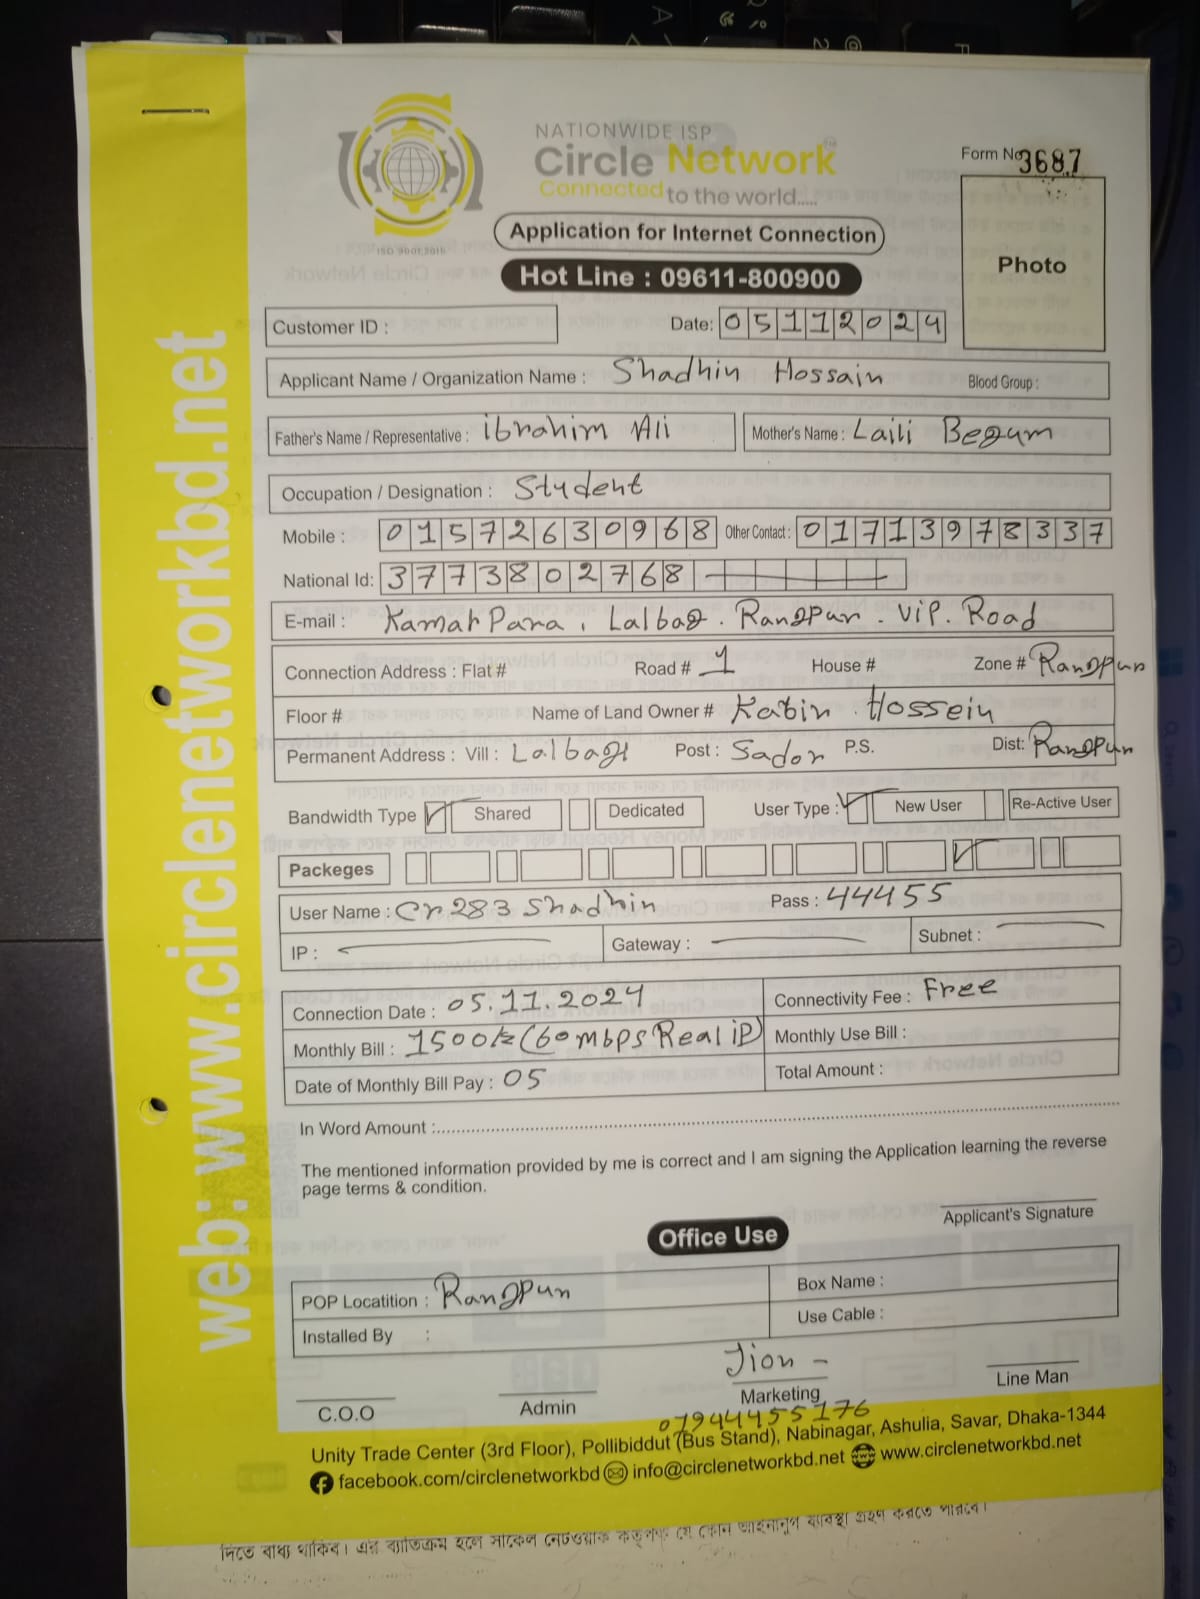 NATIONWIDE ISP
Circle Network
Connected to the world.....
ISO 9001:2015
Form No 3687
Photo
Application for Internet Connection
Hot Line : 09611-800900
Customer ID :
Date: 05112024
Applicant Name / Organization Name : Shadhin Hossain Blood Group :
Father's Name / Representative : ibrahim Ali Mother's Name : Laili Begum
Occupation / Designation : Student
Mobile : 01572630968 Other Contact : 01713978337
National Id: 3773802768
E-mail : Kamar Para, Lalbag. Rangpur. Vip. Road
Connection Address : Flat # Road # 1 House # Zone # Rangpur
Floor # Name of Land Owner # Kabir Hossein
Permanent Address : Vill : Lalbagh Post : Sador P.S. Dist: Rangpur
Bandwidth Type Shared Dedicated User Type : New User Re-Active User
Packeges
User Name : Cr283 Shadhin Pass : 44455
IP : Gateway : Subnet :
Connection Date : 05.11.2024 Connectivity Fee : Free
Monthly Bill : 1500tk (60mbps Real iP) Monthly Use Bill :
Date of Monthly Bill Pay : 05 Total Amount :
In Word Amount :
The mentioned information provided by me is correct and I am signing the Application learning the reverse
page terms & condition.
Applicant's Signature
Office Use
POP Locatition : Rangpur Box Name :
Installed By : Use Cable :
Jion -
C.O.O Admin Marketing Line Man
01944455176
Unity Trade Center (3rd Floor), Pollibiddut (Bus Stand), Nabinagar, Ashulia, Savar, Dhaka-1344
facebook.com/circlenetworkbd info@circlenetworkbd.net www.circlenetworkbd.net
web: www.circlenetworkbd.net
দিতে বাধ্য থাকিব। এর ব্যতিক্রম হলে সার্কেল নেটওয়ার্ক কতৃপক্ষ যে কোন আইনানুগ ব্যবস্থা গ্রহণ করতে পারবে।